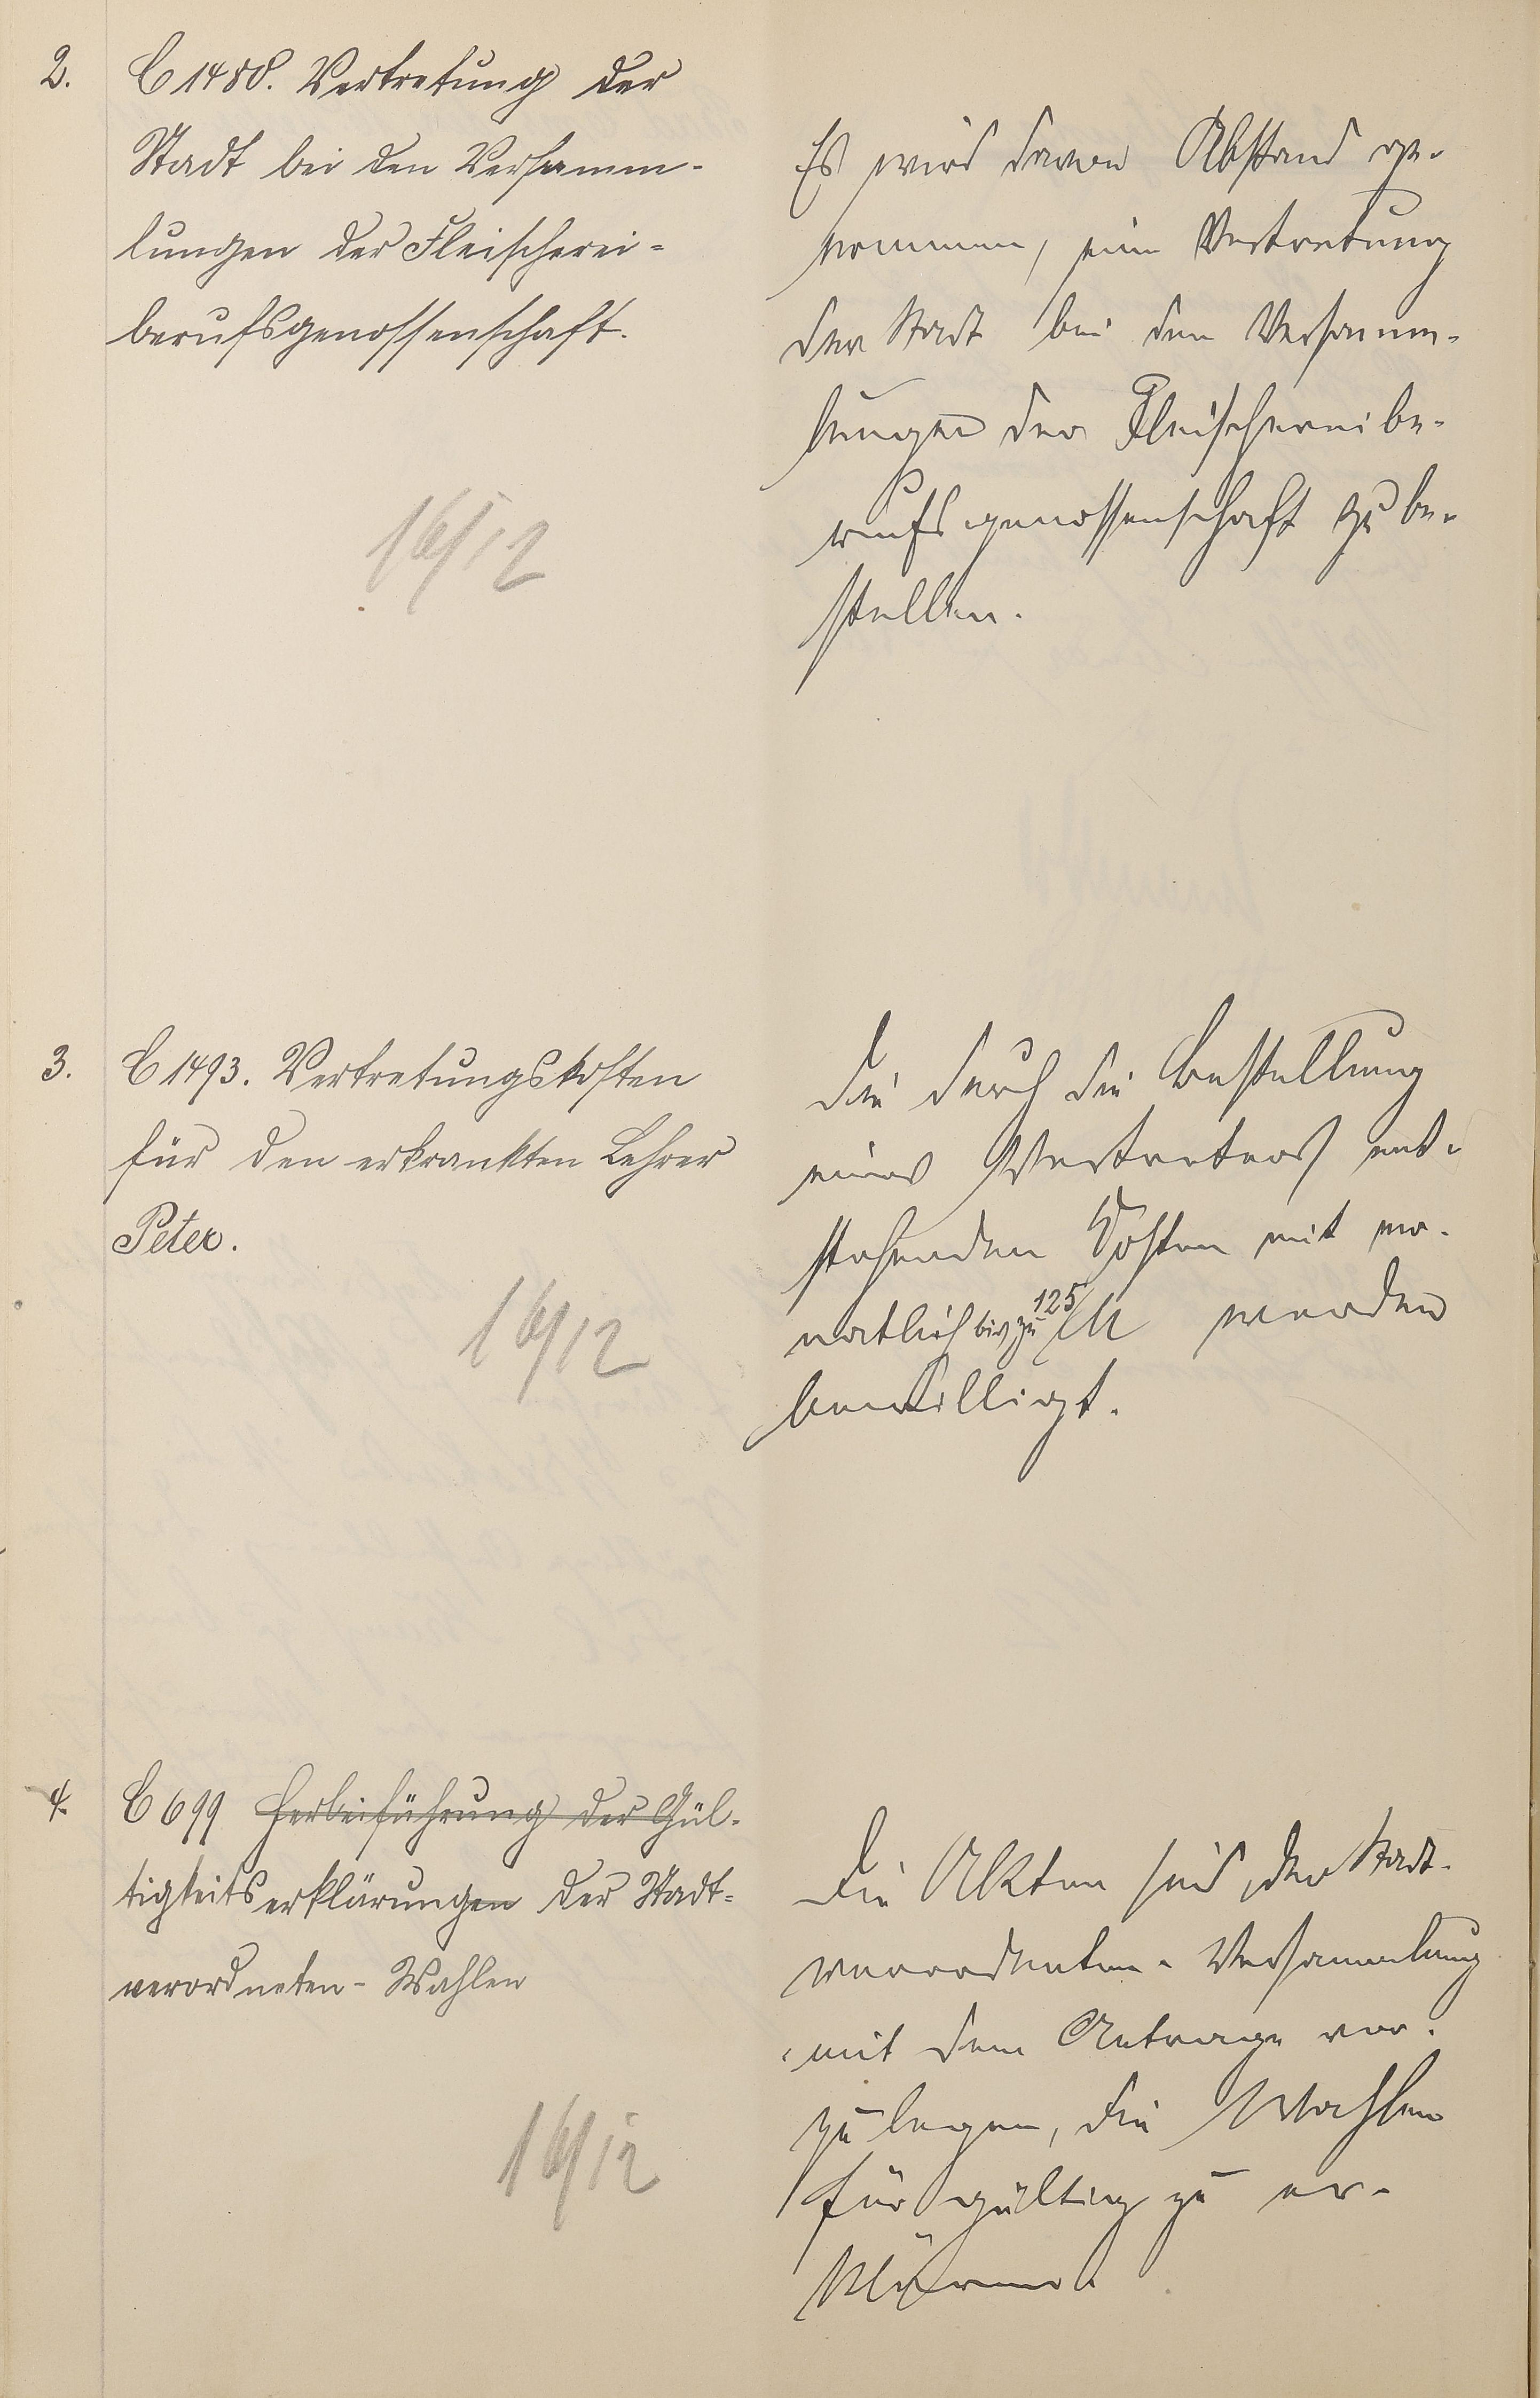 2.
C 1488. Vertretung der
Stadt bei den Versamm-
lungen der Fleischerei-
berufsgenossenschaft.
16/12
Es wird davon Abstand ge-
nommen, eine Vertretung
der Stadt bei den Versamm-
lungen der Fleischereibe-
rufsgenossenschaft zu be-
stellen.
3.
C 1493. Vertretungskosten
für den erkrankten Lehrer
Peter.
16/12
Die durch die Bestellung
eines Vertreters ent-
stehenden Kosten mit mo-
natlich bis zu 125 M werden
bewilligt.
4.
C 699 Herbeiführung der Gül-
tigkeitserklärungen der Stadt-
verordneten-Wahlen
16/12
Die Akten sind der Stadt-
verordneten-Versammlung
mit dem Antrage vor-
zulegen, die Wahlen
für gültig zu er-
klären.